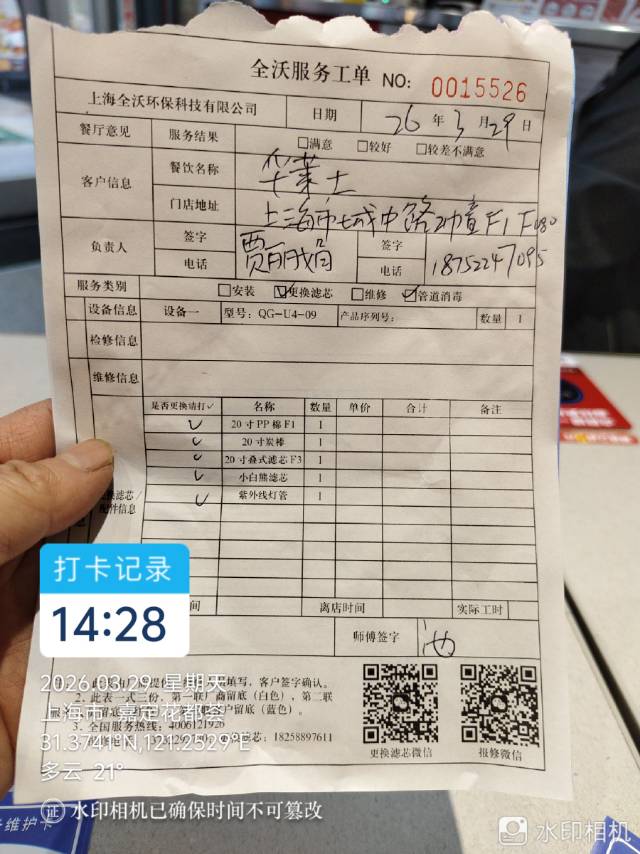 全沃服务工单 NO: 0015526
上海全沃环保科技有限公司 日期 26 年 3 月 29 日
餐厅意见 服务结果 □满意 □较好 □较差不满意
客户信息 餐饮名称 华莱士
门店地址 上海市 城中路 F1 F
负责人 签字 贾丽娟 签字
电话 电话 18752247095
服务类别 □安装 ☑更换滤芯 □维修 ☑管道消毒
设备信息 设备一 型号: QG-U4-09 产品序列号: 数量 1
检修信息
维修信息
是否更换请打✓ 名称 数量 单价 合计 备注
✓ 20寸PP棉F1 1
✓ 20寸炭棒 1
✓ 20寸叠式滤芯F3 1
✓ 小白熊滤芯 1
✓ 紫外线灯管 1
换滤芯/
配件信息
间 离店时间 实际工时
师傅签字
填写,客户签字确认。
2. 此表一式三份,第一联厂商留底(白色)、第二联
户留底(蓝色)。
3. 全国服务热线: 4006121926
芯: 18258897611
更换滤芯微信 报修微信
打卡记录
14:28
2026.03.29 星期天
上海市·嘉定花都荟
31.3741°N,121.2529°E
多云 21°
证 水印相机已确保时间不可篡改
维护卡
水印相机